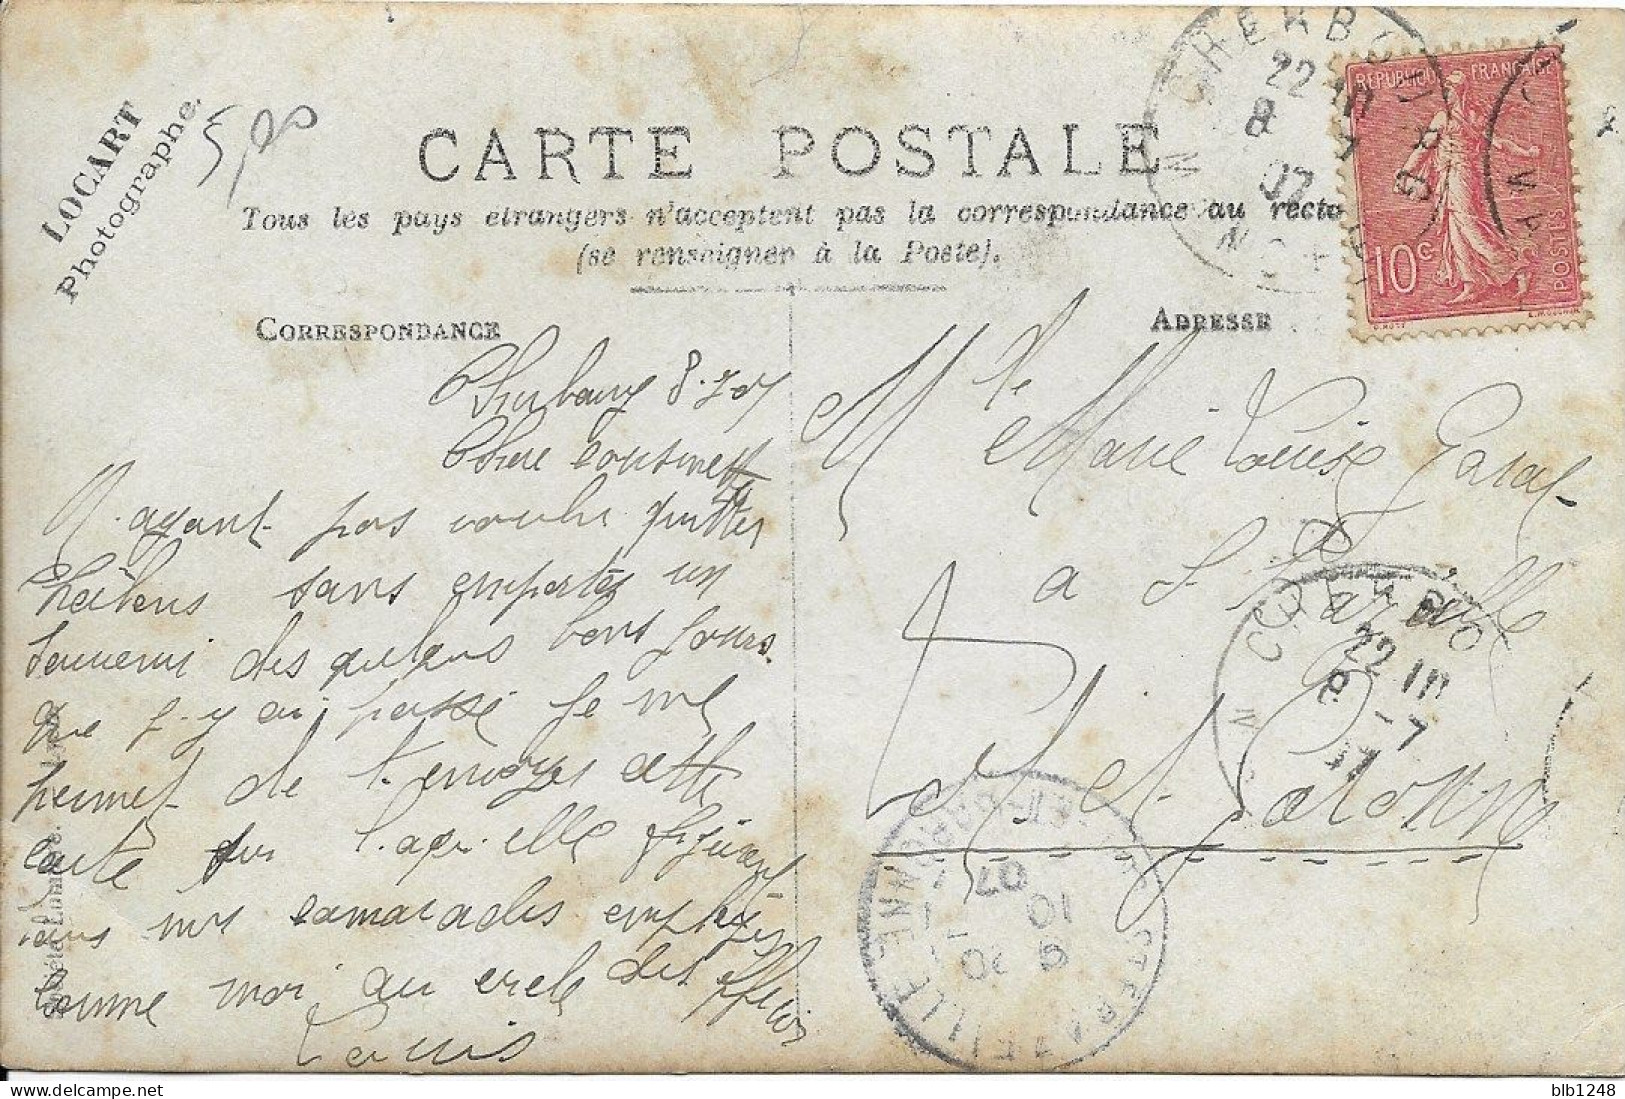 LOCART
Photographe.
5,00
CARTE POSTALE
Tous les pays étrangers n'acceptent pas la correspondance au recto
(se renseigner à la Poste).
CORRESPONDANCE
ADRESSE
REPUBLIQUE FRANÇAISE
POSTES
10c
CHERBOURG
22 10
8 -7
07
MANCHE
Cherbourg 8.7 07
Chere Cousinette
N'ayant pas voulu quitter
sans emporter un
souvenir des quelques bons jours
que j'y ai passé je me
permet de t'envoyer cette
carte sur laquelle figurent
tous mes camarades employés
comme moi au cercle des officiers
Louis
Mlle Marie Louise
a St
Tet et Garonne
CHERBO
22 10
8 -7
07
9 30
10 -7
07
blb1248